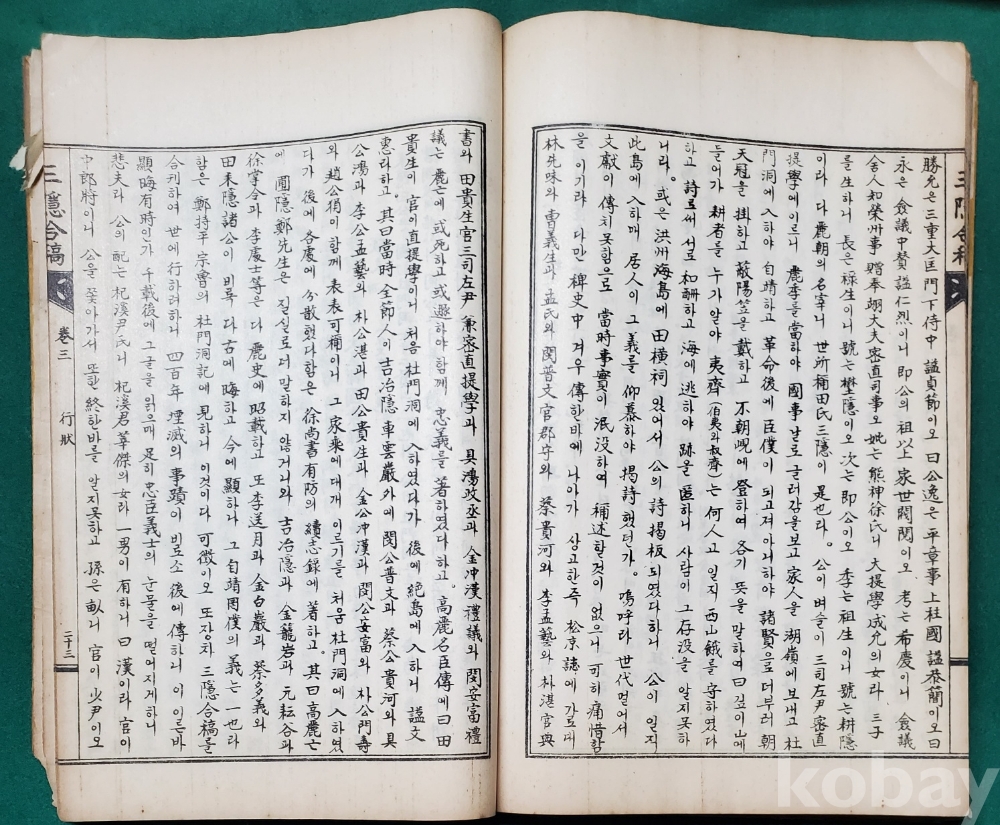 勝光은 三重大匡門下侍中 謚貞節이오 曰公逸은 平章事上柱國 謚恭簡이오 曰
永은 僉議中贊謚仁烈이니 即公의 祖以上家世閥閱이오 考는 希慶이니 僉議
舍人知榮州事 贈奉翊大夫密直司事오 妣는 熊神徐氏니 大提學成允의 女라 三子
를 生하니 長은 祿生이니 號는 壄隱이오 次는 即公이오 季는 祖生이니 號는 耕隱
이라 다 麗朝의 名宰니 世所稱田氏三隱이 是也라 公이 벼슬이 三司左尹密直
提學에 이르니 麗季를 當하야 國事날로 글러감을보고 家人을 湖嶺에 보내고 杜
門洞에 入하야 自靖하고 革命後에 臣僕이 되고저 아니하야 諸賢으로더부러 朝
天冠을 掛하고 蔽陽笠을 戴하고 不朝峴에 登하여 各기 뜻을 말하여 曰 깊이 山에
들어가 耕者를 누가 알야 夷齊伯夷와叔齊는 何人고 일지 西山餓를 守하였다
하고 詩로써 서로 和酬하고 海에 逃하야 跡을 匿하니 사람이 그存没을 알지못하
니라 或은 洪州海島에 田橫祠 있어서 公의 詩揭板되였다하니 公이 일직
此島에 入하매 居人이 그 義를 仰慕하야 揭詩했던가 嗚呼라 世代멀어서
文獻이 傳치못함으로 當時事實이 泯没하여 補述할것이 없으니 可히 痛惜함
을 이기랴 다만 稗史中 겨우 傳한바에 나아가 상고한즉 松京誌에 가로대
林先味와 曺義生과 孟氏와 閔普文官郡守와 蔡貴河와 李孟藝와 朴湛官典
書와 田貴生官三司左尹兼密直提學과 具鴻政丞과 金冲漢禮議와 閔安富禮
議는 麗亡에 或死하고 或遯하야 함께 忠義를 著하였다하고 高麗名臣傳에 曰 田
貴生이 官이 直提學이니 처음 杜門洞에 入하였다가 後에 絶島에 入하니 謚文
惠라하고 其曰當時全節人이 吉冶隱 車雲巖外에 閔公普文과 蔡公貴河와 具
公鴻과 李公孟藝와 朴公湛과 田公貴生과 金公冲漢과 閔公安富와 朴公門壽
와 趙公狷이 함께 表表可稱이니 그 家乘에 대개 이르기를 처음 杜門洞에 入하였
다가 後에 各處에 分散했다함은 徐尚書有防의 續志錄에 著하고 其曰高麗亡
에 圃隱鄭先生은 진실로더말하지 않거니와 吉冶隱과 金籠岩과 元耘谷과
徐掌令과 李處士等은 다 麗史에 昭載하고 또 李送月과 金白巖과 蔡多義와
田耒隱諸公이 비록 다 古에 晦하고 今에 顯하나 그 自靖罔僕의 義는 一也라
함은 鄭持平宗魯의 杜門洞記에 見하니 이것이다 可徵이오 또장차 三隱合稿를
合刊하여 世에 行하려하니 四百年 堙滅의 事蹟이 비로소 後에 傳하니 이 이른바
顯晦有時인가 千載後에 그글을 읽으매 足히 忠臣義士의 눈물을 떨어지게하니
悲夫라 公의 配는 杞溪尹氏니 杞溪君尊傑의 女라 一男이 有하니 曰 漢이라 官이
中郎將이니 公을 쫓아가서 또한 終한바를 알지못하고 孫은 畝니 官이 少尹이오
三隱合稿
卷三
行狀
二十三
三隱合稿
kobay